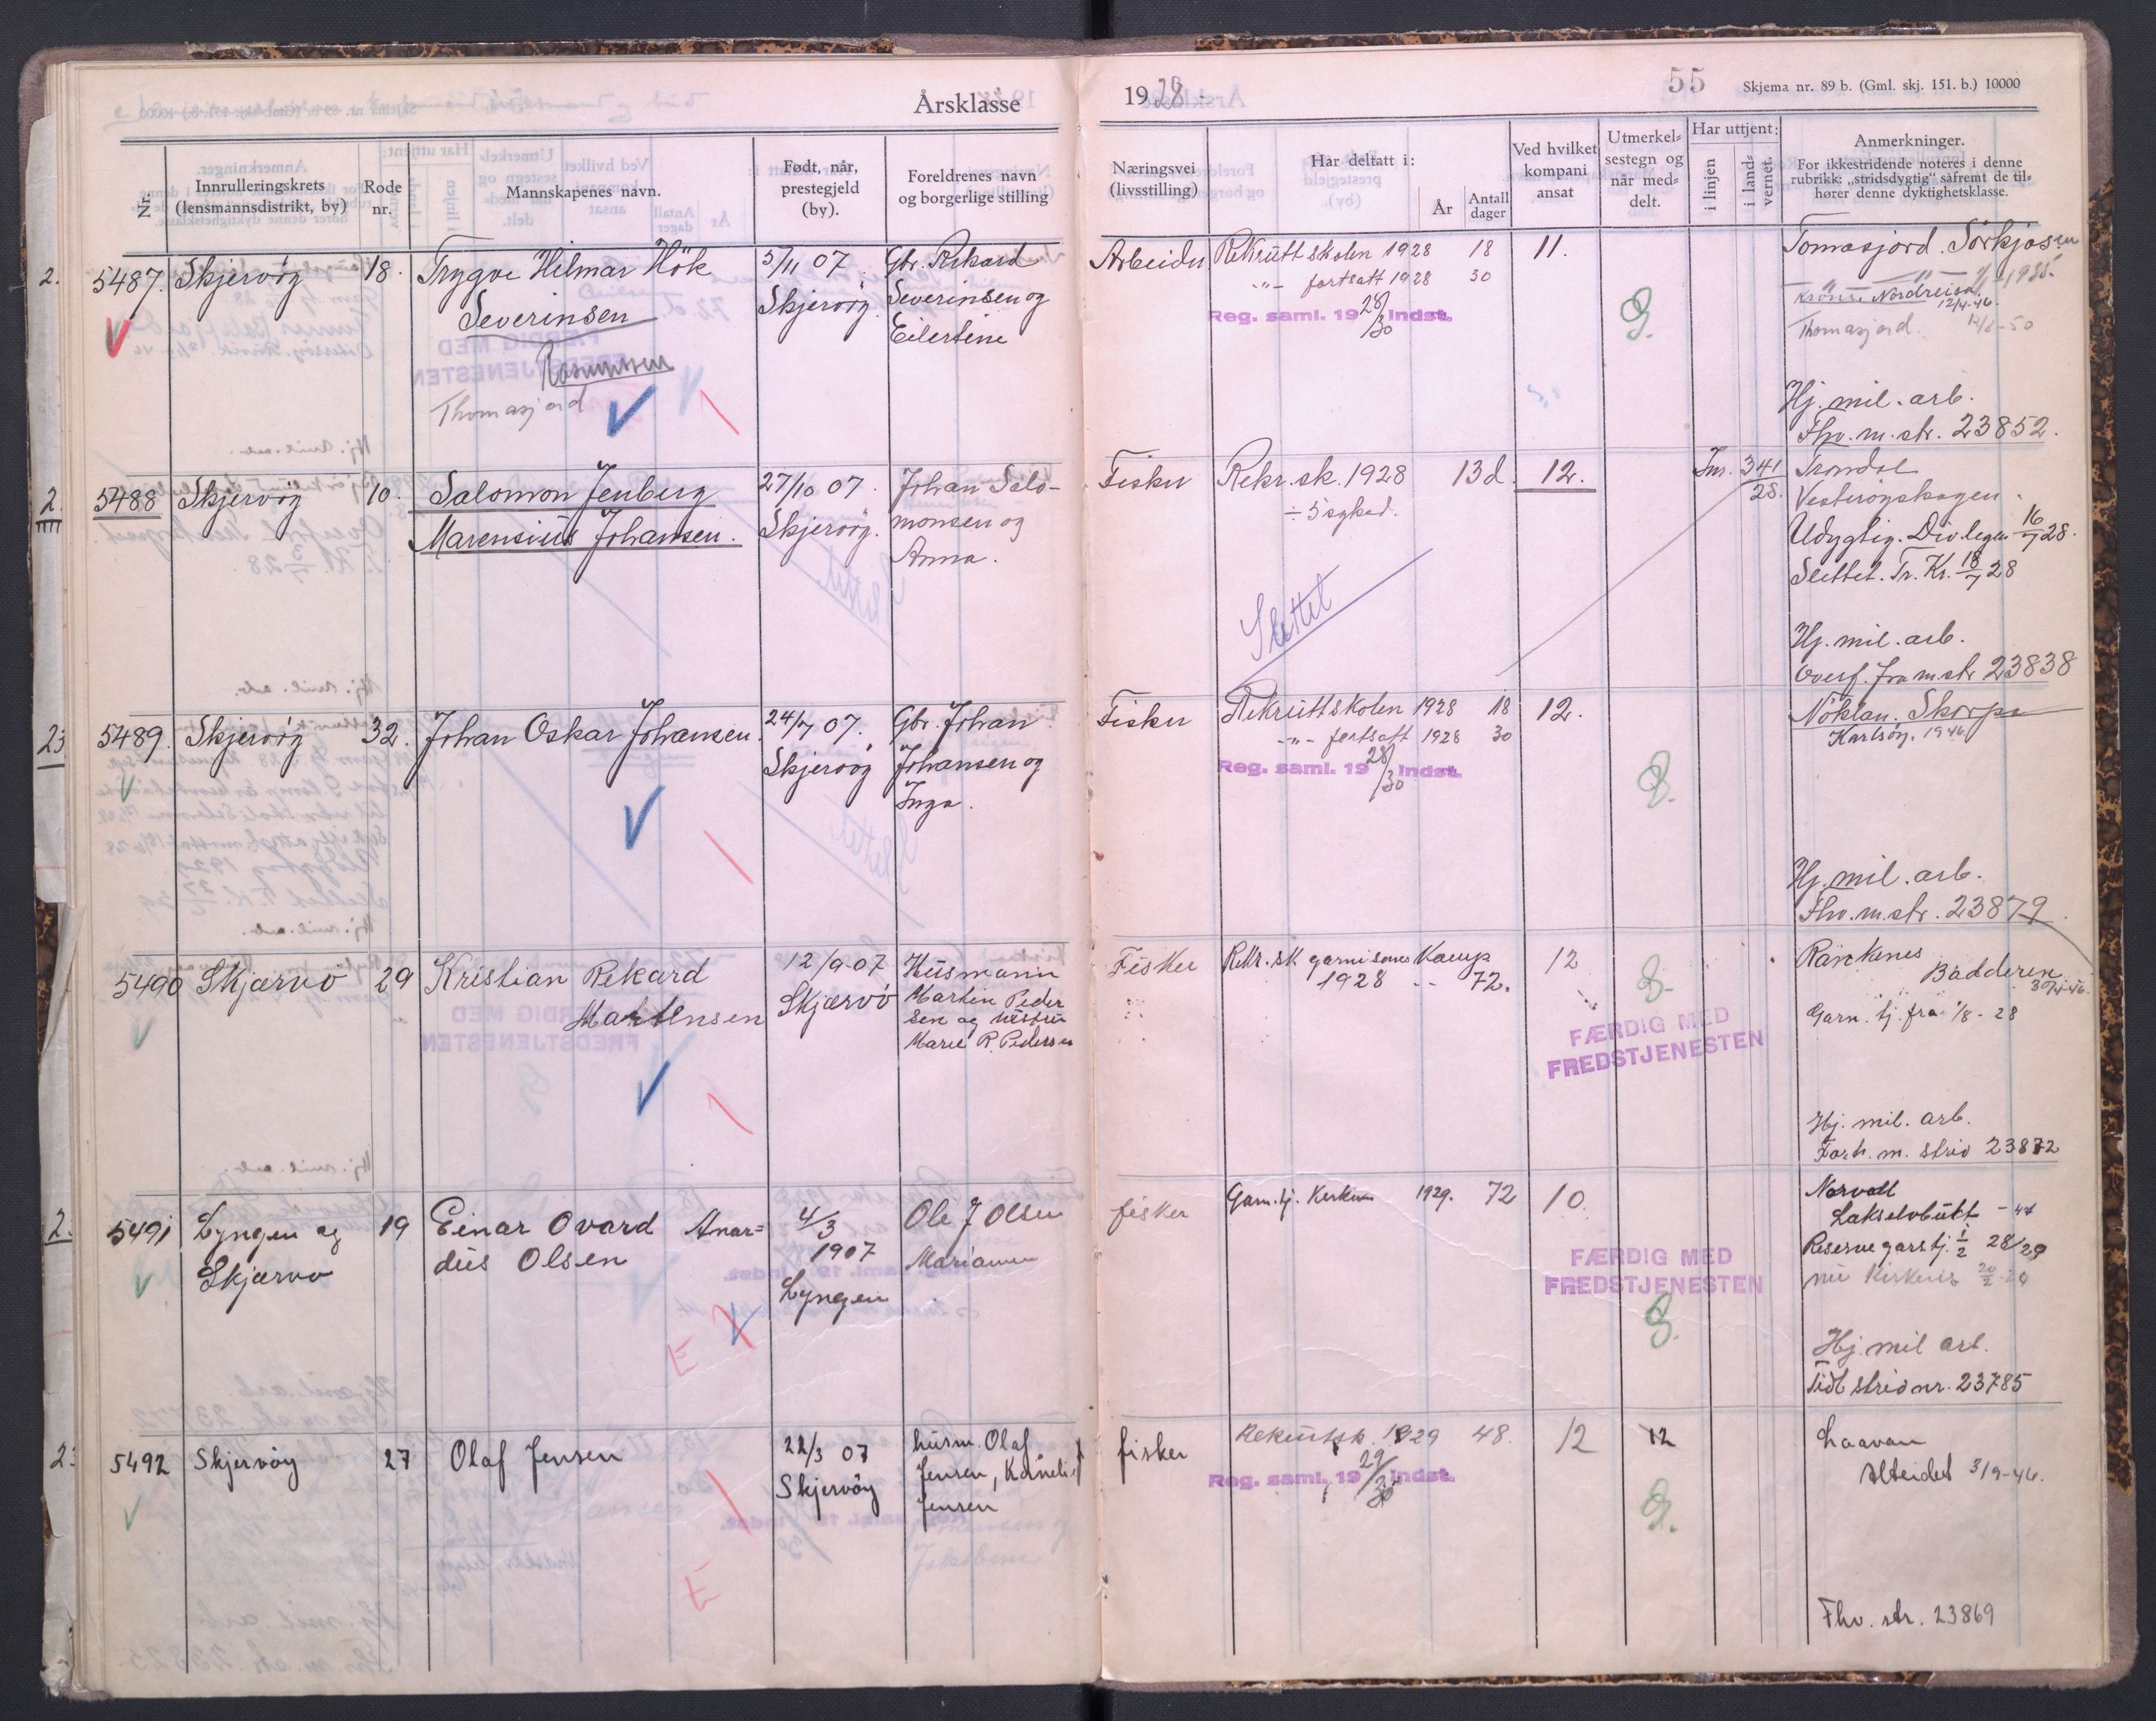 Årsklasse 1928 55 Skjema nr. 89 b. (Gml. skj. 151. b.) 10000
Nr.
Innrulleringskrets
(lensmannsdistrikt, by)
Rode
nr.
Mannskapenes navn.
Født, når,
prestegjeld
(by).
Foreldrenes navn
og borgerlige stilling
Næringsvei
(livsstilling)
Har deltatt i:
År
Antall
dager
Ved hvilket
kompani
ansat
Utmerkel-
sestegn og
når med-
delt.
Har uttjent:
i linjen
i land-
vernet.
Anmerkninger.
For ikkestridende noteres i denne
rubrikk: „stridsdygtig" såfremt de til-
hører denne dyktighetsklasse.
2.
5487.
Skjervøy
18.
Trygve Hilmar Hök
Severinsen
Rasmussen
Thomasjord
5/11 07
Skjervöy.
Gbr. Rikard
Severinsen og
Eilertine
Arbeider
Rekruttskolen 1928 18
-"- fortsatt 1928 30
Reg. saml. 19 28/30 Indst.
11.
Tomasjord. Sörkjosen
Nordreisa
12/4-46.
Thomasjord. 12/8-50
Hj. mil. arb.
Fhv. m. str. 23852.
2.
5488
Skjervöy
10.
Salomon Jenberg
Marensius Johansen.
27/10 07.
Skjervöy.
Johan Salo-
monsen og
Anna.
Fisker
Rekr. sk. 1928 13d.
÷ 5 syked.
Slettet
12.
Inr. 341
28.
Trondal
Vesteröyskagen.
Udygtig. Div.legen 16/7 28.
Slettet. Tr. Kr. 18/7 28
Hj. mil. arb.
Overf. fra m str 23838
23
5489.
Skjervöy
32.
Johan Oskar Johansen.
24/7 07.
Skjervöy
Gbr. Johan
Johansen og
Inga.
Fisker
Rekruttskolen 1928 18
-"- fortsatt 1928 30
Reg. saml. 19 28/30 Indst.
12.
Nöklan. Skorpa
Karlsöy. 1946
Hj. mil. arb.
Fhv. m. str. 23879.
5490
Skjærvö
29
Kristian Rikard
Martensen
12/9-07
Skjærvö
Husmann
Martin Peder
sen og hustru
Marie R. Pedersen
Fisker
Rekr. sk. garnisons Kamp
1928 -- 72.
12
FÆRDIG MED
FREDSTJENESTEN
Badderen
30/4-46.
Garn. tj. fra 1/8-28
Hj. mil. arb.
Forh. m. strid 23872
2.
5491
Lyngen og
Skjærvö
19
Einar Ovard Anar=
dus Olsen
4/3
1907
Lyngen
Ole J Olsen
Marianne
fisker
Garn. tj. Kirkenes 1929. 72
10.
FÆRDIG MED
FREDSTJENESTEN
Lakselvbukt - 47
28/29
nu Kirkenes 20/2 29
Hj. mil arb.
Tidl strid nr. 23785
2
5492
Skjervöy
27
Olaf Jensen
22/3 07
Skjervöy
husm. Olaf
Jensen,
Jensen
fisker
Rekruttsk. 1929 48.
Reg. saml. 19 29/30 Indst.
12
12
Laavan
Alteidet 3/9-46.
Fhv. str. 23869